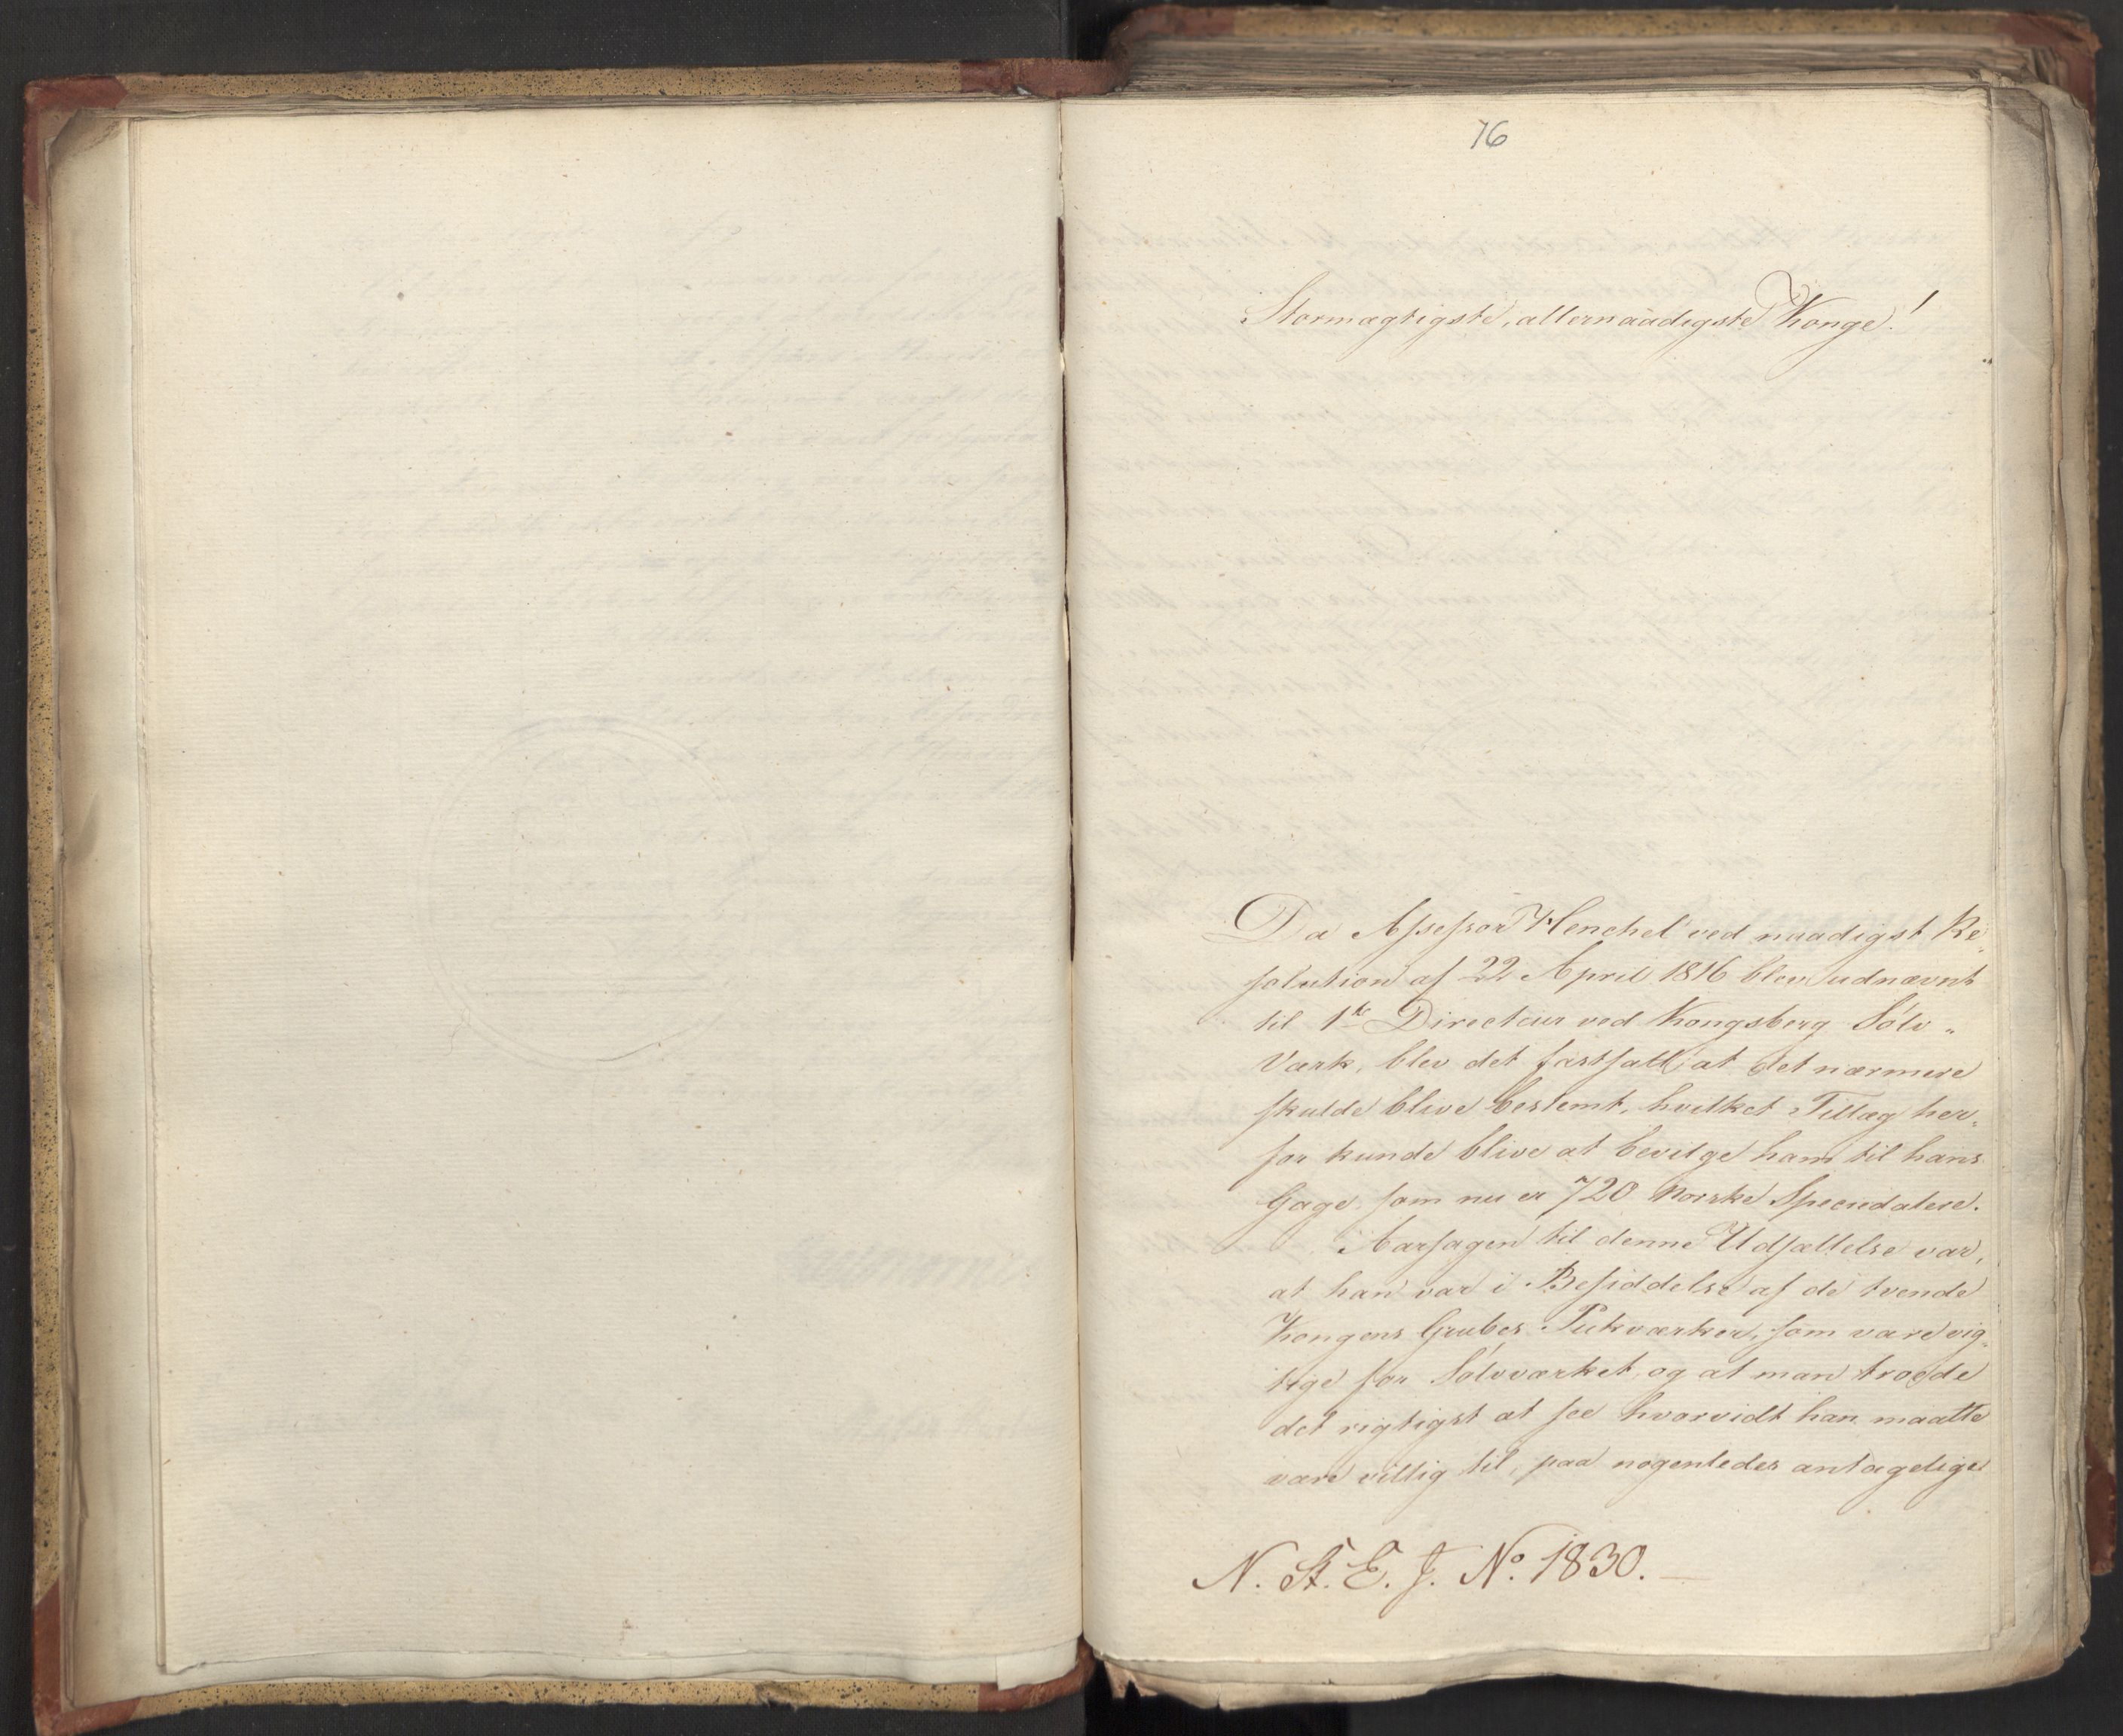 76
Stormægtigste, allernaadigste Konge!
Da Assessor Henchel ved naadigst Re„
solution af 22 April 1816 blev udnævnt
til 1ste Directeur ved Kongsberg Sølv„
Værk, blev det fastsatt, at det nærmere
skulde blive bestemt, hvilket Tillæg her„
for kunde blive at bevilge ham til hans
Gage, som nu er 720 Norske Speciedalere.
Aarsagen til denne Udsættelse var,
at han var i Besiddelse af de tvende
Kongens Grubes Pukværker, som vare vig„
tige for Sølvværket, og at man troede
det rigtigst at see hvorvidt han maatte
være villig til, paa nogenledes antagelige
N. St. E. J. No. 1830.